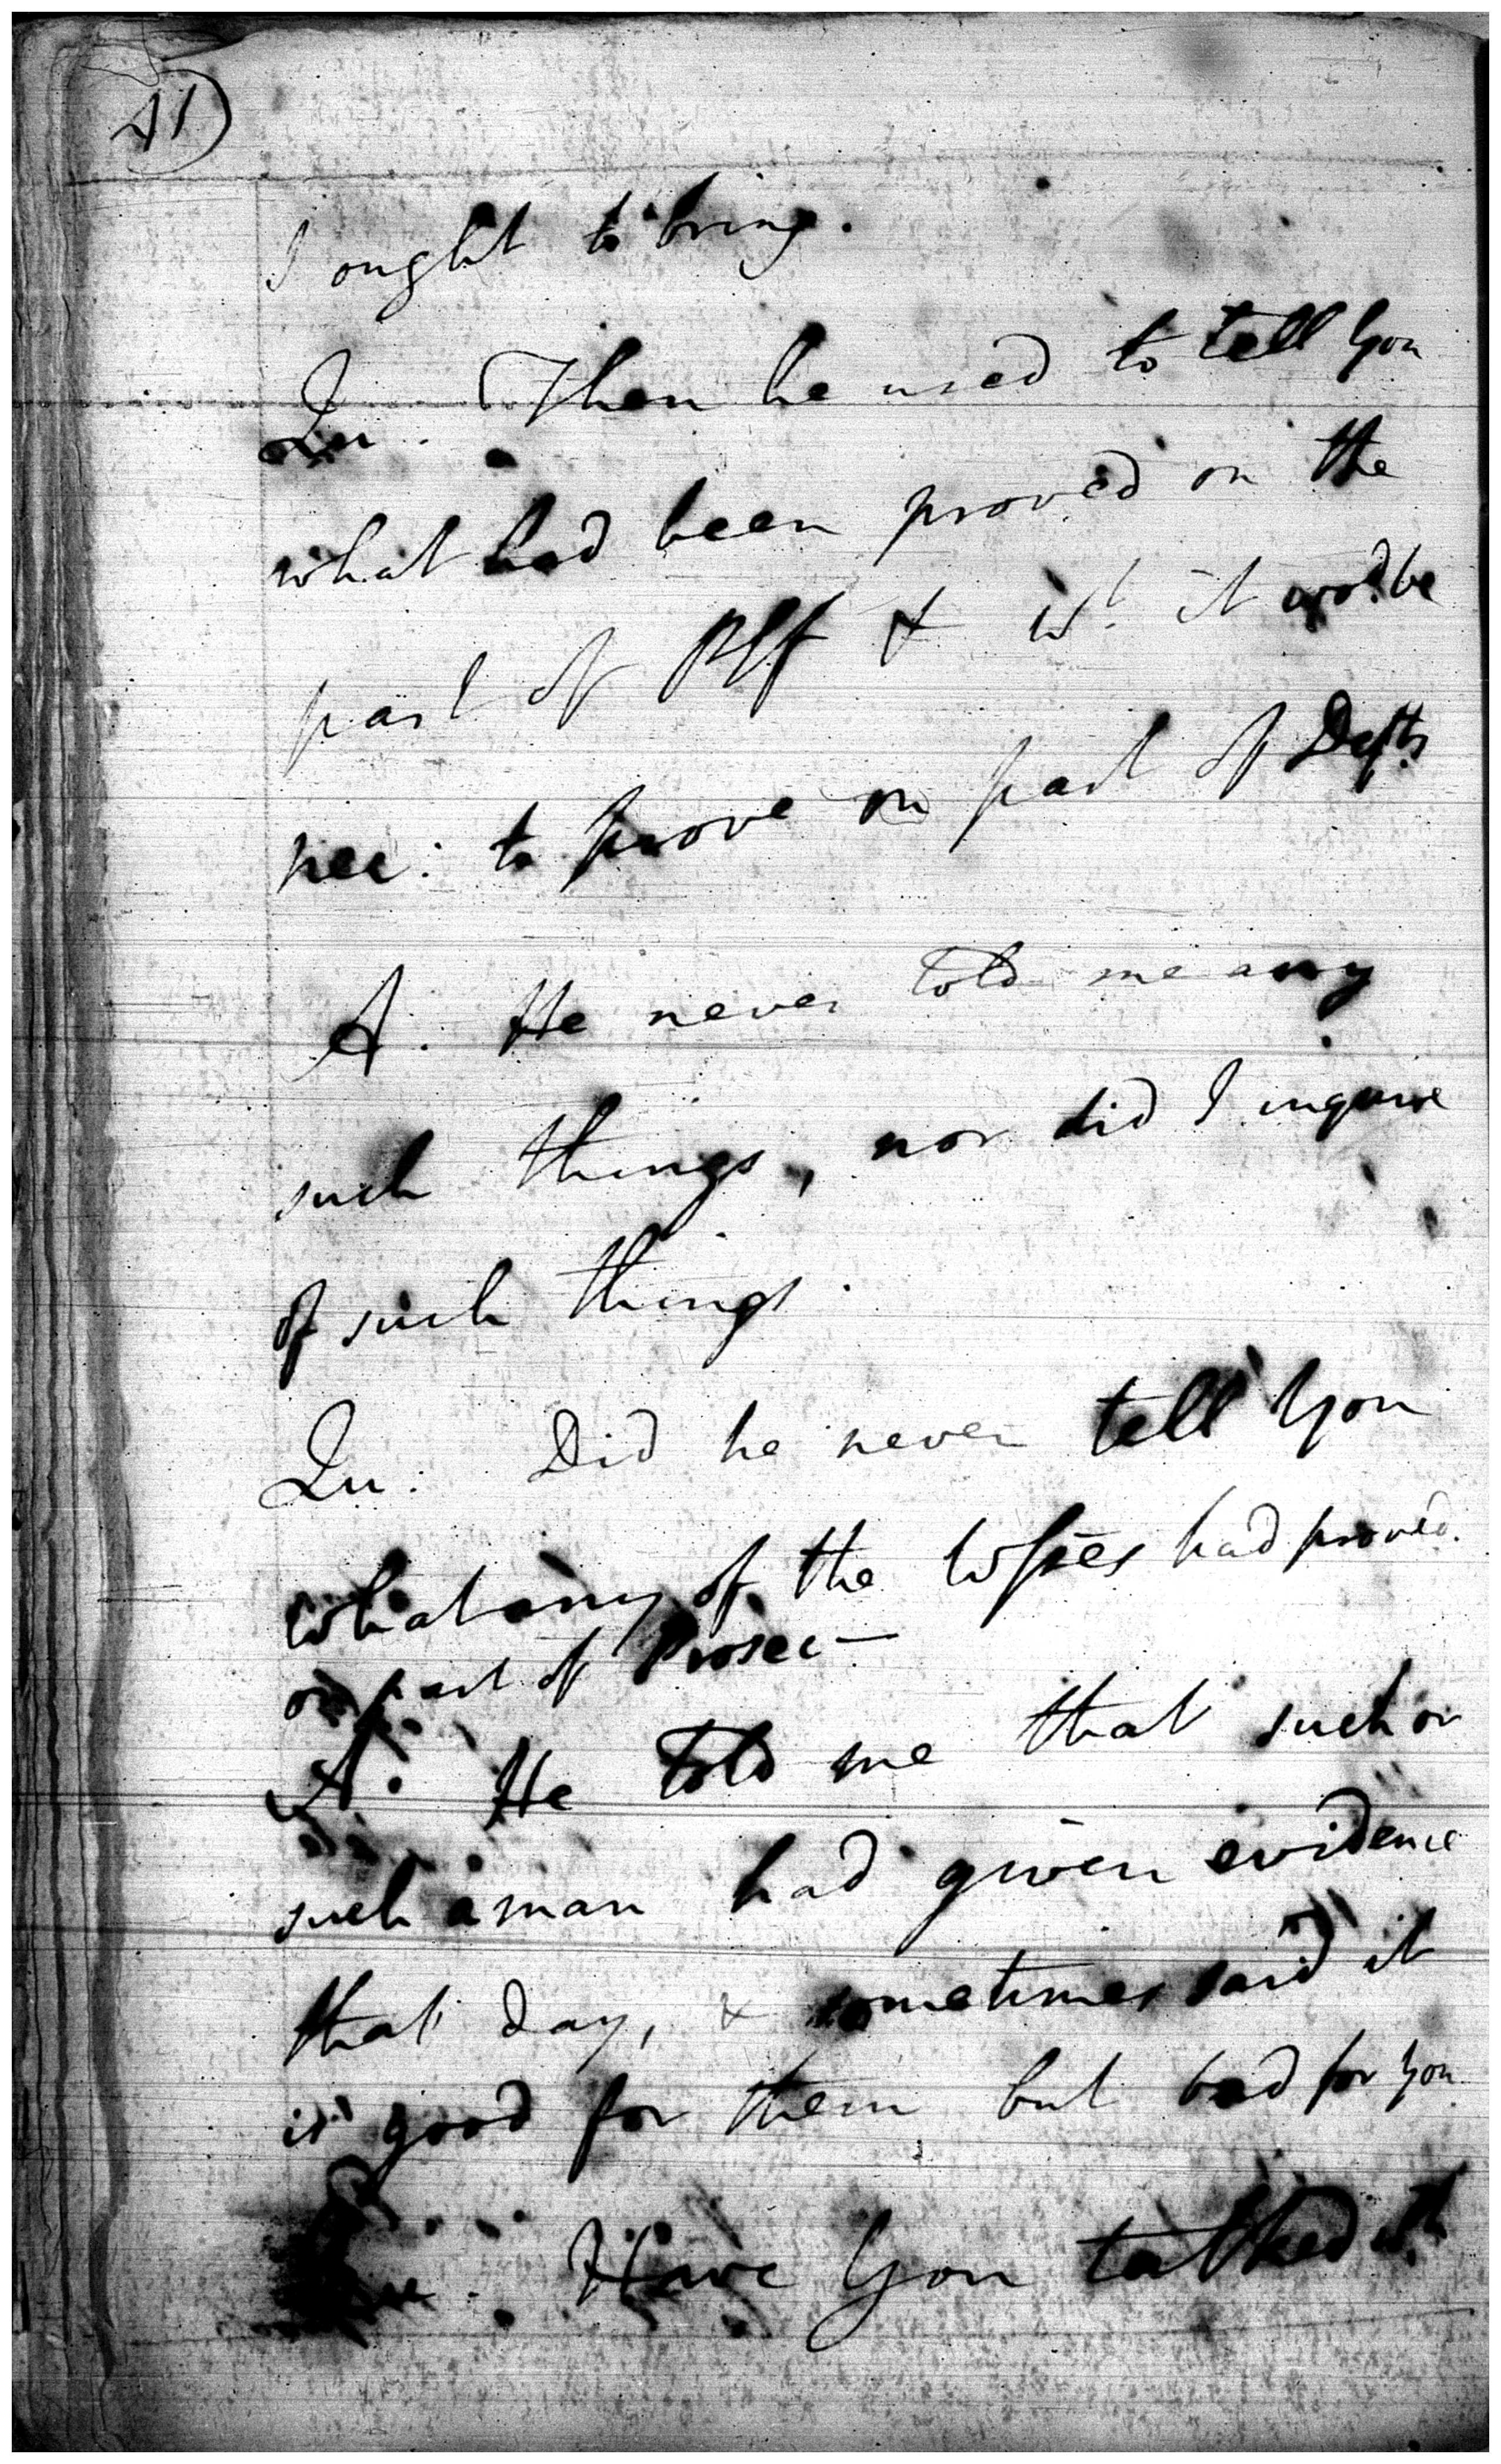 41)
I ought to bring.
Qu. Then he used to tell You
what had been proved on the
part of Plf & wt. it wod. be
nec: to prove on part of Defts
A. He never told me any
such things, nor did I inquire
of such things.
Qu: Did he never tell You
what any of the Wsses had proved.
on part of Prosec—
A. He told me that such or
such a man had given evidence
that day, & sometimes said it
is good for them but bad for You
Qu. Have You talked wth